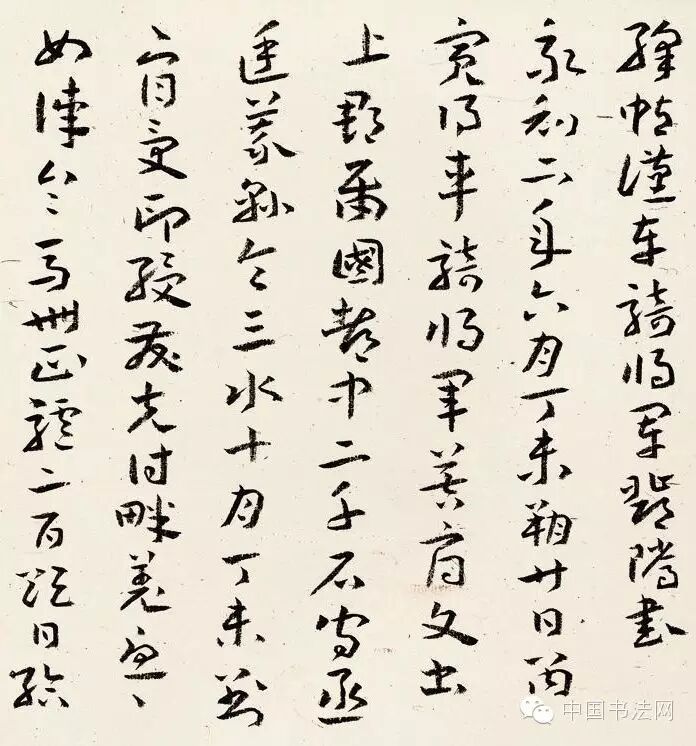 帖漢車騎將軍鄧騭書
永初二年六月丁未朔廿日丙
寅得車騎將軍莫府文書
上郡屬國都中二千石守丞
廷義縣令三水十月丁未到
府受印綬發夫討畔羌急〻
如律令馬卅匹驢二百頭日給
中国书法网